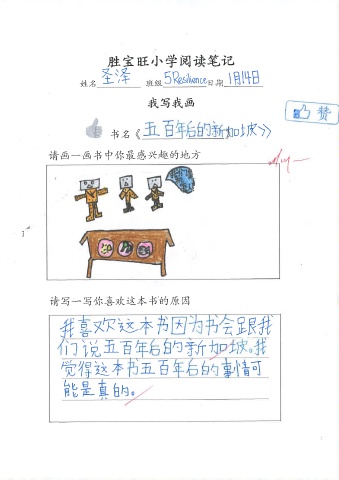 胜宝旺小学阅读笔记
姓名 圣泽 班级 5Resilience 日期 1月14日
我写我画
赞
书名《五百年后的新加坡》
请画一画书中你最感兴趣的地方
请写一写你喜欢这本书的原因
我喜欢这本书因为书会跟我
们说五百年后的新加坡。我
觉得这本书五百年后的事情可
能是真的。